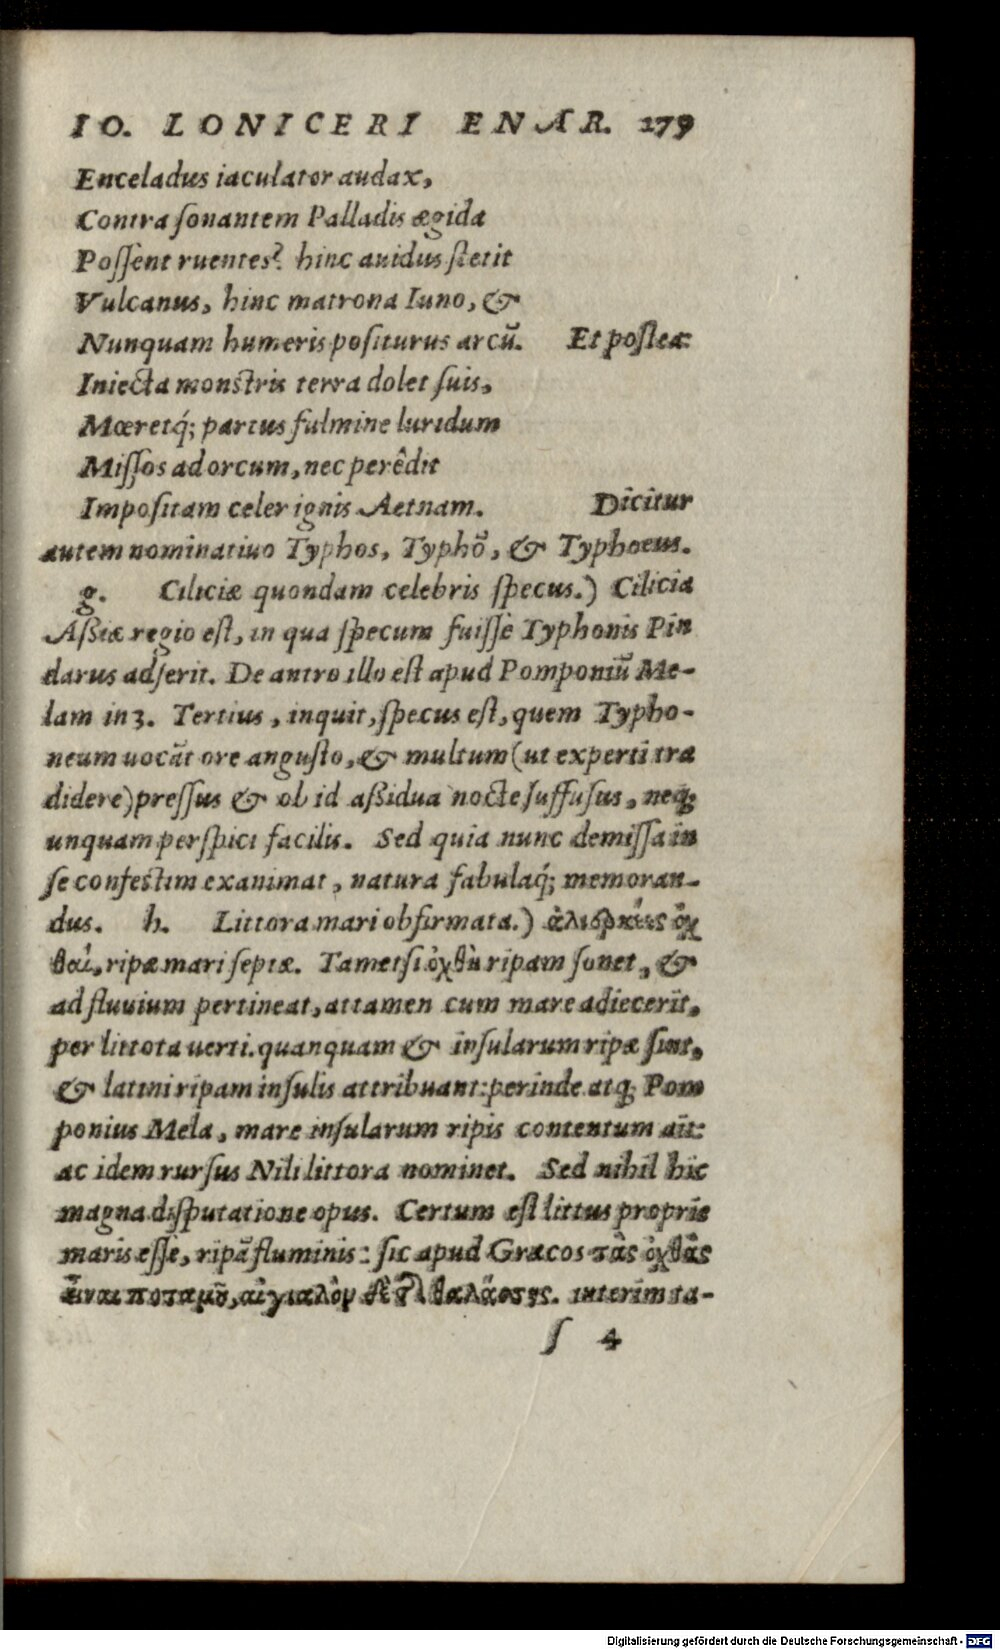 IO. LONICERI ENAR. 279
Enceladus iaculator audax,
Contra ſonantem Palladis ægida
Poſſent ruentes? hinc auidus ſtetit
Vulcanus, hinc matrona Iuno, &
Nunquam humeris poſiturus arcũ. Et poſtea:
Iniecta monſtris terra dolet ſuis,
Mœretq́; partus fulmine luridum
Miſſos ad orcum, nec perêdit
Impoſitam celer ignis Aetnam. Dicitur
autem nominatiuo Typhos, Typhõ, & Typhoeus.
g. Ciliciæ quondam celebris ſpecus.) Cilicia
Aßiæ regio eſt, in qua ſpecum fuiſſe Typhonis Pin
darus adſerit. De antro illo eſt apud Pomponiũ Me-
lam in 3. Tertius, inquit, ſpecus eſt, quem Typho-
neum uocãt ore anguſto, & multum (ut experti tra
didere) preſſus & ob id aßidua nocte ſuffuſus, neq;
unquam perſpici facilis. Sed quia nunc demiſſa in
ſe confeſtim exanimat, natura fabulaq́; memoran-
dus. h. Littora mari obfirmata.) ἁλιερκέες ὀχ
θαὶ, ripæ mari ſeptæ. Tametſi ὀχθὴ ripam ſonet, &
ad fluuium pertineat, attamen cum mare adiecerit,
per littota uerti. quanquam & inſularum ripæ ſint,
& latini ripam inſulis attribuant: perinde atq; Pom
ponius Mela, mare inſularum ripis contentum aĩt:
ac idem rurſus Nili littora nominet. Sed nihil hic
magna diſputatione opus. Certum eſt littus proprie
maris eſſe, ripã fluminis: ſic apud Græcos τὰς ὀχθὰς
εἶναι ποταμοῦ, αἰγιαλὸν δὲ τῆς θαλάσσης. interim ta-
ſ 4
Digitalisierung gefördert durch die Deutsche Forschungsgemeinschaft - DFG